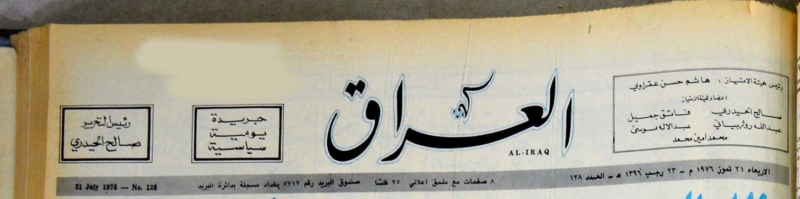 رئيس هيئة الامتياز : هاشم حسن عقراوي
اعضاء هيئة الامتياز
صالح الحيدري فائق جميل
عبدالله روژبياني عبدالاله موسى
محمد امين محمد
العراق
AL-IRAQ
جريدة
يومية
سياسية
رئيس التحرير
صالح الحيدري
الاربعاء ٢١ تموز ١٩٧٦ م - ٢٣ رجب ١٣٩٦ هـ - العدد ١٢٨
٨ صفحات مع ملحق اعلاني ٢٥ فلسا
صندوق البريد رقم ٥٧١٧ بغداد مسجلة بدائرة البريد
21 July 1976 — No. 128